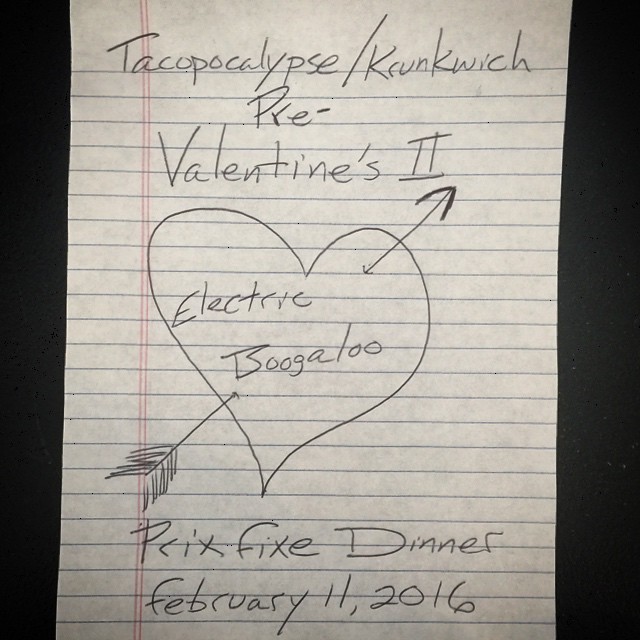 Tacopocalypse/Krunkwich
Pre-
Valentine's II
Electric
Boogaloo
Prix fixe Dinner
february 11, 2016